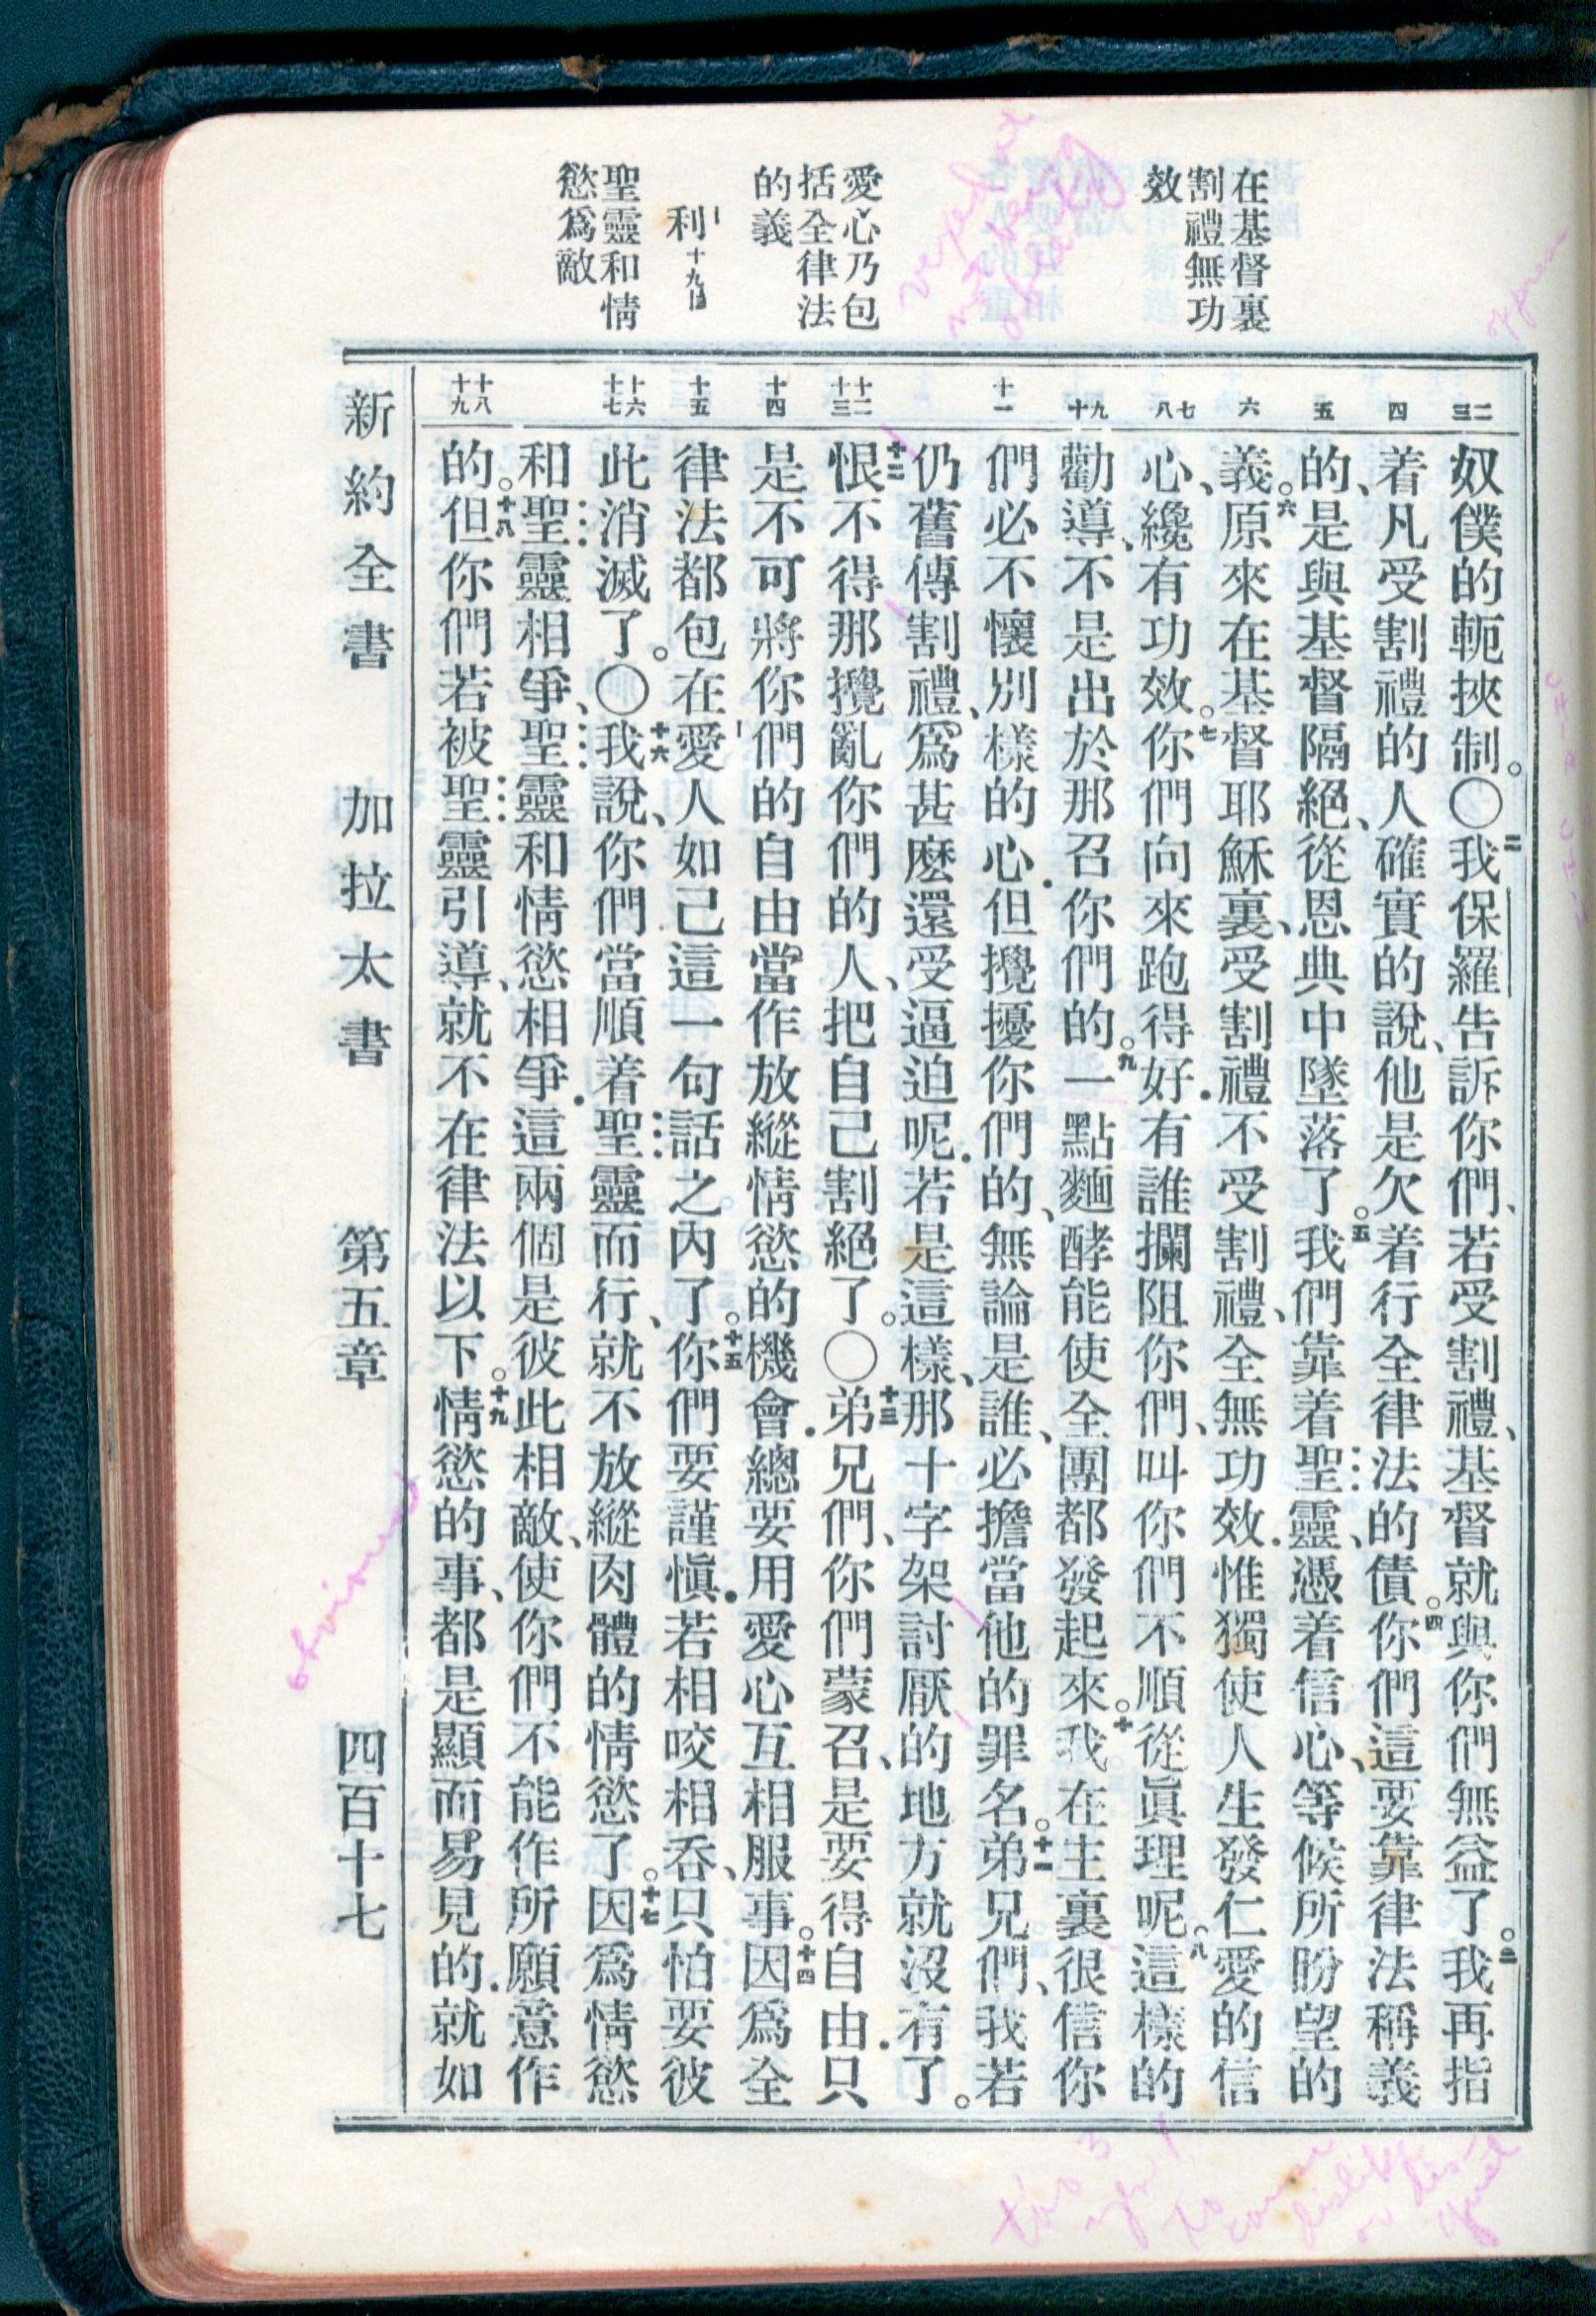 在基督裏
割禮無功
效
愛心乃包
括全律法
的義
利十九
聖靈和情
慾爲敵
二
三
四
五
六
七
八
九
十
十一
十二
十三
十四
十五
十六
十七
十八
十九
奴僕的軛挾制。〇二我保羅告訴你們、若受割禮、基督就與你們無益了。三我再指
着凡受割禮的人確實的說、他是欠着行全律法的債。四你們這要靠律法稱義
的、是與基督隔絕、從恩典中墜落了。五我們靠着聖靈、憑着信心、等候所盼望的
義。六原來在基督耶穌裏、受割禮不受割禮、全無功效.惟獨使人生發仁愛的信
心、纔有功效。七你們向來跑得好.有誰攔阻你們、叫你們不順從眞理呢。八這樣的
勸導、不是出於那召你們的。九一點麵酵能使全團都發起來。十我在主裏很信你
們必不懷別樣的心.但攪擾你們的、無論是誰、必擔當他的罪名。十一弟兄們、我若
仍舊傳割禮、爲甚麼還受逼迫呢.若是這樣、那十字架討厭的地方就沒有了。
十二恨不得那攪亂你們的人、把自己割絕了。〇十三弟兄們、你們蒙召、是要得自由.只
是不可將你們的自由當作放縱情慾的機會.總要用愛心互相服事。十四因爲全
律法都包在愛人如己這一句話之內了。十五你們要謹愼.若相咬相吞、只怕要彼
此消滅了。〇十六我說、你們當順着聖靈而行、就不放縱肉體的情慾了。十七因爲情慾
和聖靈相爭、聖靈和情慾相爭.這兩個是彼此相敵、使你們不能作所願意作
的。十八但你們若被聖靈引導、就不在律法以下。十九情慾的事、都是顯而易見的.就如
新約全書 加拉太書 第五章 四百十七